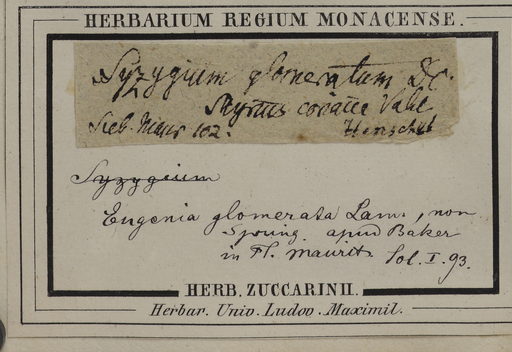 HERBARIUM REGIUM MONACENSE.
Syzygium glomeratum DC.
Myrtus coriacea Vahl
Sieb. Maur 102. Henschel
Syzygium
Eugenia glomerata Lam., non
Spring. apud Baker
in Fl. maurit. Sol. I. 93.
HERB. ZUCCARINII.
Herbar. Univ. Ludov. Maximil.